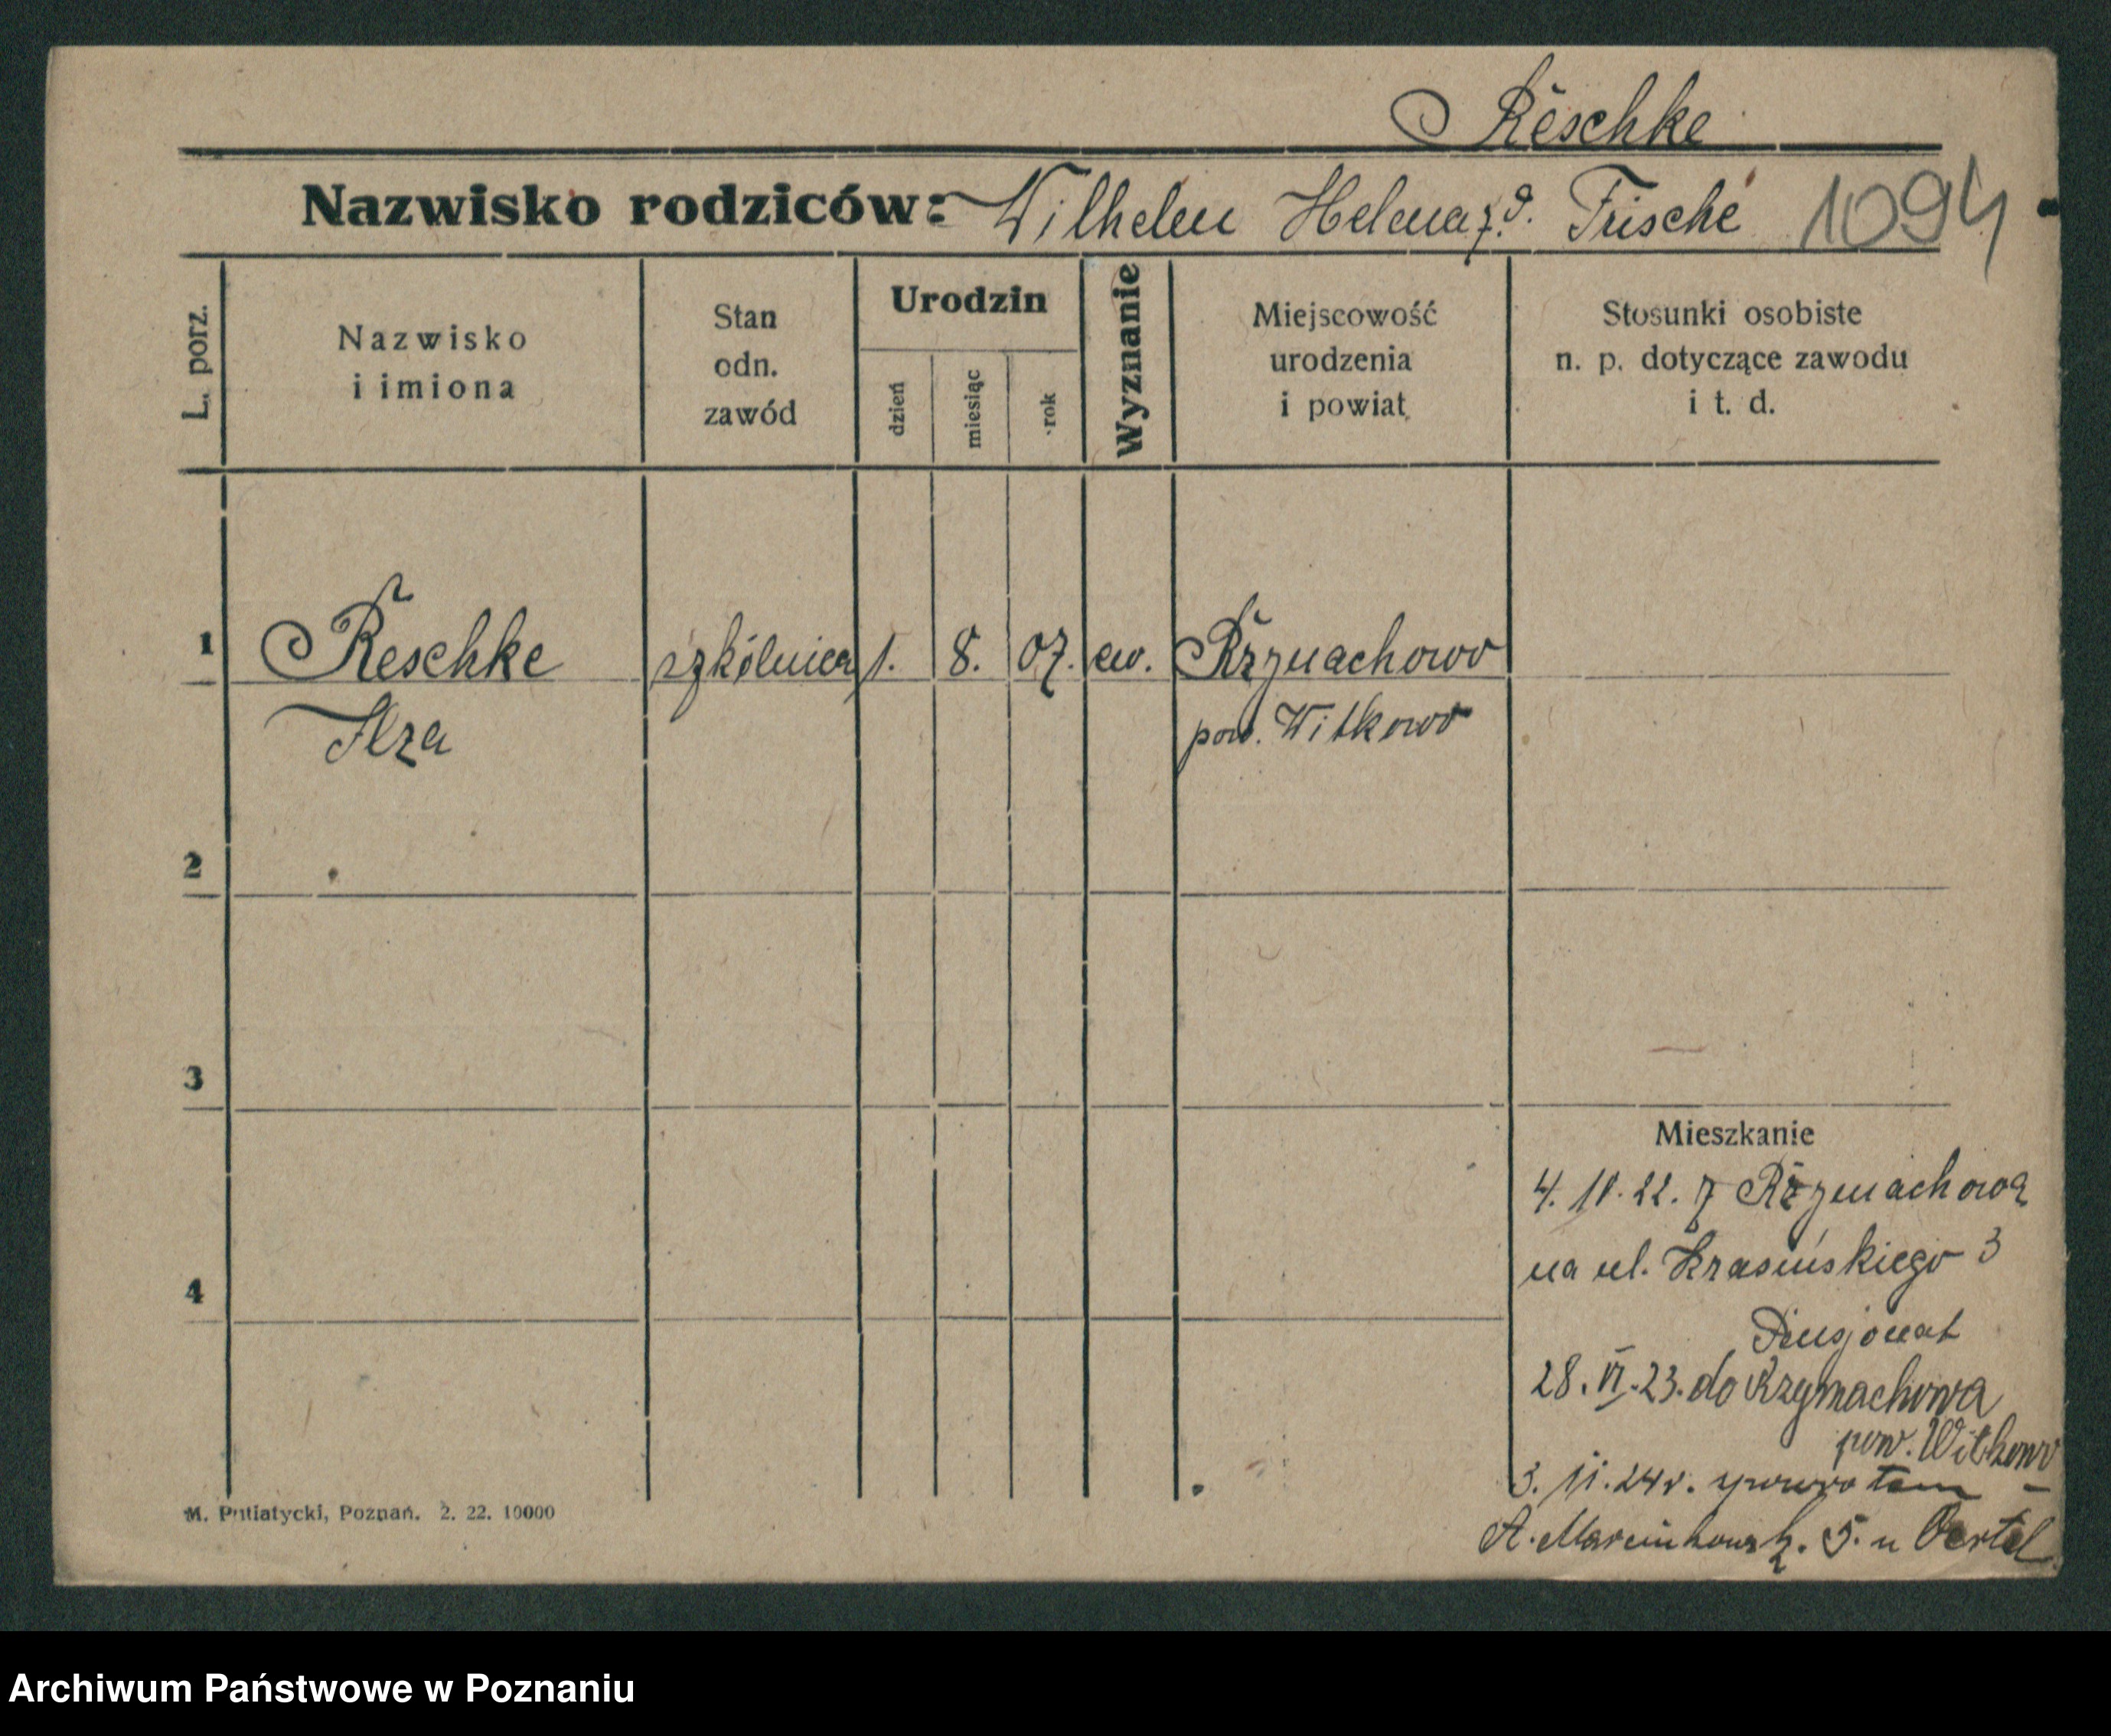 Reschke
Nazwisko rodziców: Wilhelm Helena z. d. Frische 1094
L. porz.
Nazwisko
i imiona
Stan
odn.
zawód
Urodzin
dzień
miesiąc
rok
Wyznanie
Miejscowość
urodzenia
i powiat
Stosunki osobiste
n. p. dotyczące zawodu
i t. d.
1 Reschke szkólnica 1. 8. 07. ew. Rzymachowo
Ilza pow. Witkowo
2
3
4
Mieszkanie
4. 11. 22. z Rzymachowa
na ul. Krasińskiego 3
Pensjonat
28. VI. 23. do Rzymachowa
pow. Witkowo
3. 11. 24 r. zpowrotem -
A. Marcinkowsk. 5. u Oertel
M. Putiatycki, Poznań. 2. 22. 10000
Archiwum Państwowe w Poznaniu